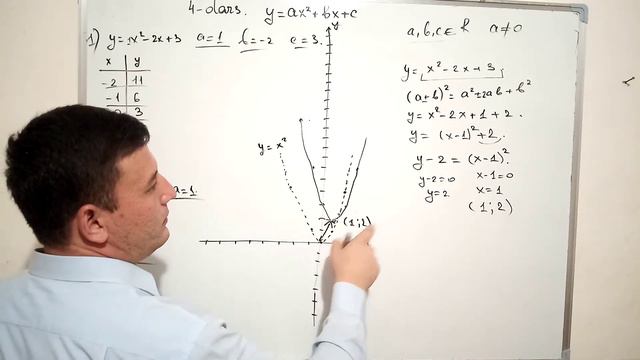 4-dars. y=ax²+bx+c
1) y=1x²-2x+3 a=1 b=-2 c=3.
x y
-2 11
-1 6
0 3
a=1
y
y=x²
(1;2)
a,b,c∈R a≠0
y=x²-2x+3;
(a±b)²=a²±2ab+b²
y=x²-2x+1+2.
y=(x-1)²+2.
y-2=(x-1)².
y-2=0 x-1=0
y=2 x=1
(1;2)